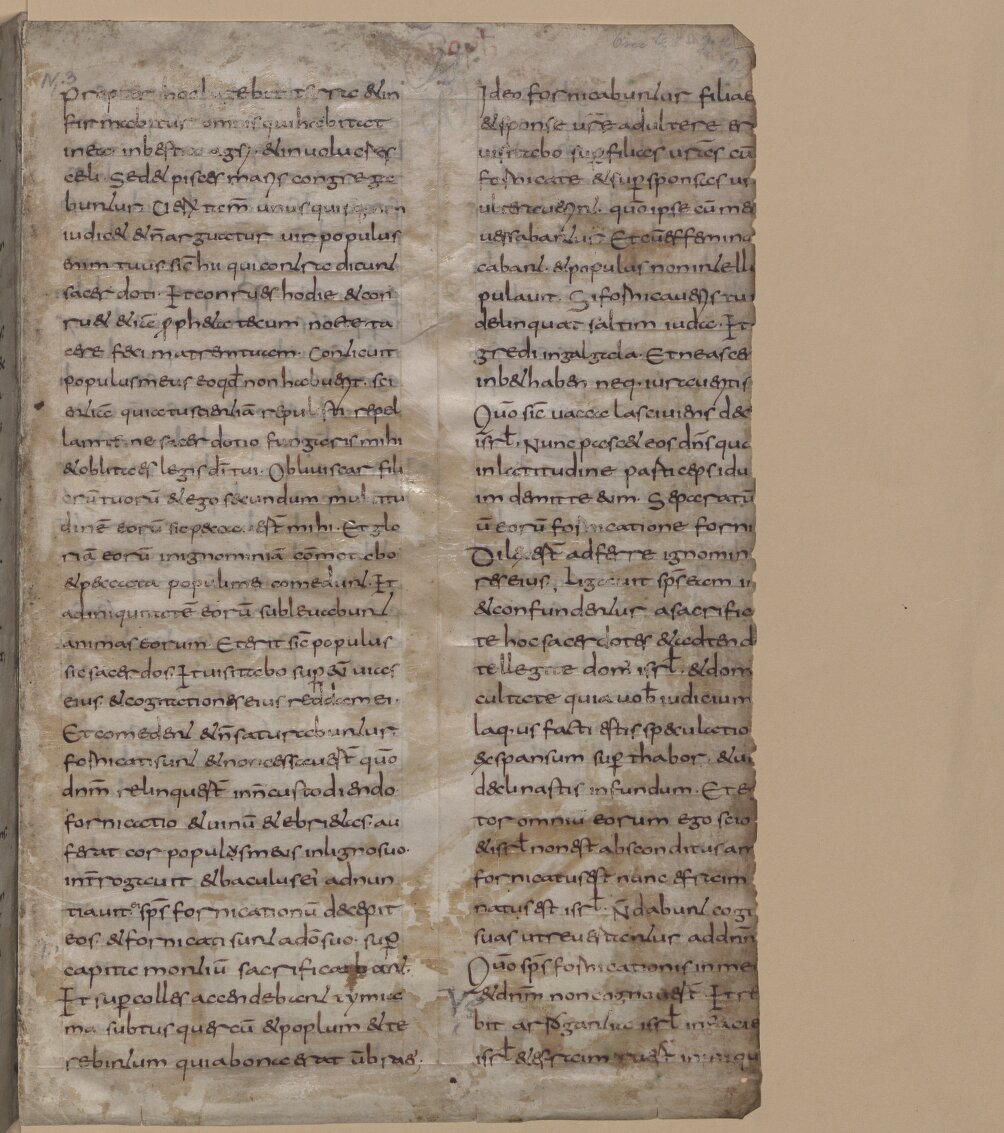 N. 3
Propter hoc lugebit terra & in
firmabitur omnis qui habitat
in ea in bestia agri & in volucres
celi. Sed & pisces maris congrega
bunt̄. unus quisque
iudic& & n̄ arguatur vir populus
enim tuus sic hii qui contradicunt
sacerdoti. It corrues hodie & cor
ru& &iā p̱ph&a tecum nocte ta
cere feci matrem tuam. Conticuit
populus meus eo qd̄ non habuerit sci
entiā quia tu scientiā repulisti repel
lam te ne sacerdotio fungaris mihi
& oblita es legis dī tui. Obliviscar fili
orū tuorū & ego secundum multitu
dinē eorū sic peccav mihi. Et glo
riā eorū in ignominiā cōmotabo
& peccata populi mei comedunt. It
ad iniquitatē eorū sublevabunt
animas eorum. Et erit sic populus
sic sacerdos. It visitabo sup̱ eū vias
eius & cogitationes eius reddam ei.
Et comedent & n̄ saturabuntur
fornicati sunt & non cessaverunt quō
dn̄m relinquerunt in n̄ custodiendo
fornicatio & vinū & ebri&as au
ferat cor populus meus in ligno suo
int̄rogavit & baculus ei adnun
tiavit sp̄s fornicationū decepit
eos & fornicati sunt a dō suo. sup̱
capita montiū sacrificabant.
It super colles accendebant tymia
ma subtus quercū & poplum & te
rebintum quia bona erat ūbra eius.
Ideo fornicabuntur filiae
& sponse vr̄e adultere er
visitabo sup̱ filias vr̄as cū
fornicate & sup̱ sponsas vr
ulteraverint. quō ipse cū me
versabantur. Et cū effemina
cabant. & populus non intelli
pulavit. Si fornicaveris tu
delinquat saltim iudae. It
gredi in galgala. Et ne asce
in b&haben neq. iuraveritis
Quō sic vacca lasciviens dec
isrł. Nunc pasc& eos dn̄s qua
in latitudine particeps idu
im demitte eum. Separatū
ū eorū fornicatione forni
Dile adferre ignomin
res eius. Ligavit sp̄s eam in
& confundentur a sacrific
te hoc sacerdotes & adtend
tellegate dom̄ isrł. & dom
cultate quia vob̄ iudicium
laq.us facti estis speculatio
& expansum sup̱ thabor. & vi
declinastis in fundum. Et e
tor omniū eorum ego scio
& isrł non est absconditus a m
fornicatus est nunc efraim
natus est isrł. N̄ dabunt cogi
suas ut revertentur ad dn̄m
Quō sp̄s fornicationis in me
& dn̄m non cognoverunt. It re
bit arrogantia isrł in facie
isrł & efraim ruent in iniqu